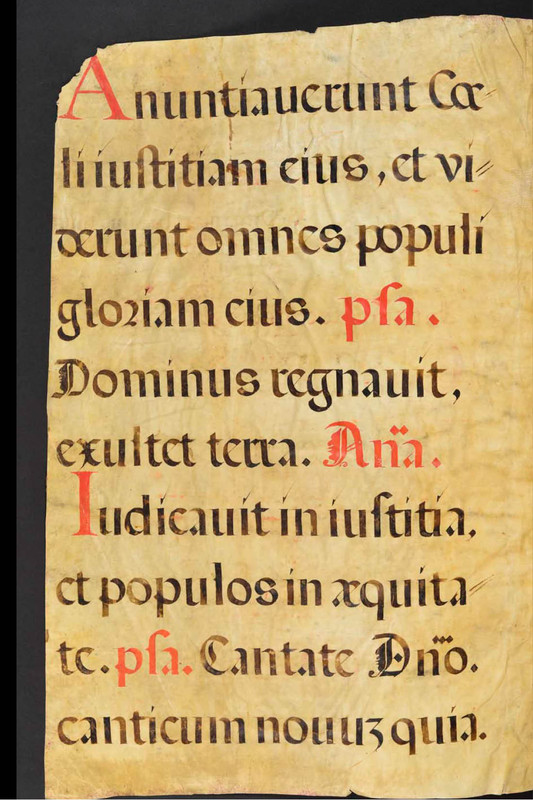 Anuntiauerunt Cœ-
li iuſtitiam eius, et vi-
derunt omnes populi
gloꝛiam eius. pſa.
Dominus regnauit,
exultet terra. An̈a.
Iudicauit in iuſtitia,
et populos in æquita-
te. pſa. Cantate Dn̈o.
canticum nouuʒ quia.